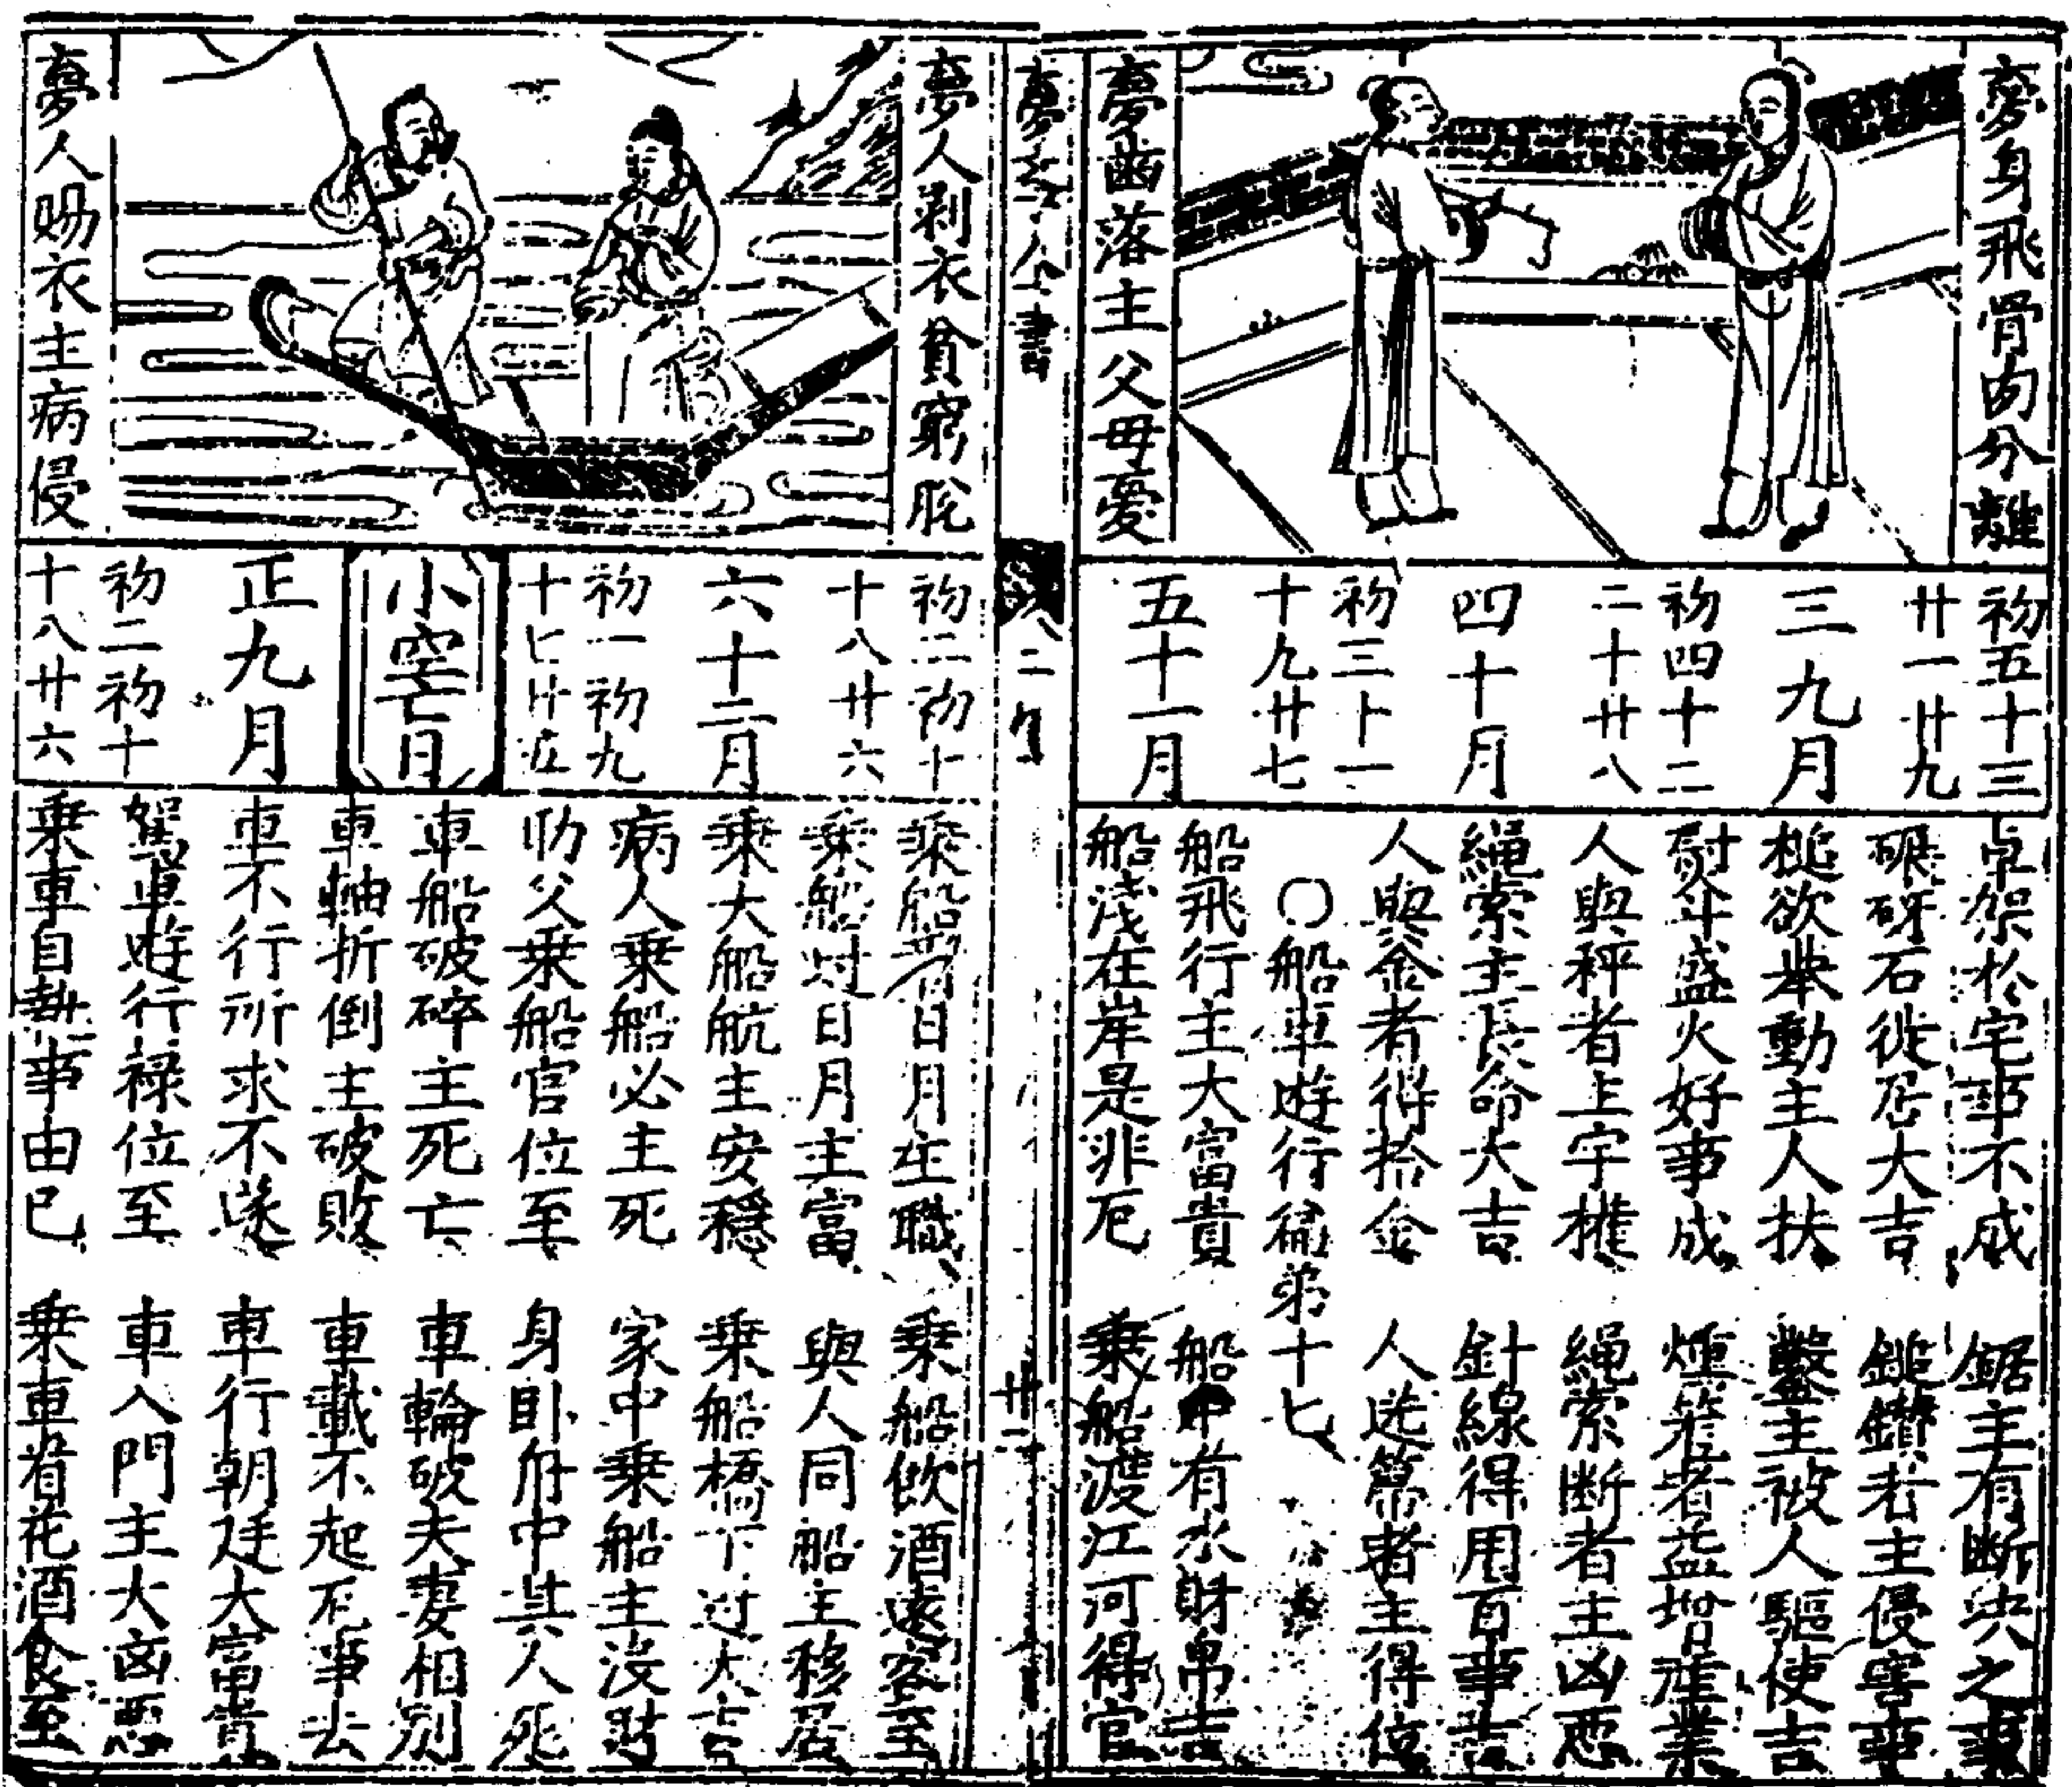 夢身飛骨肉分離
夢齒落主父母憂
初五十三
廿一廿九
三九月
初四十二
二十廿八
四十月
初三十一
十九廿七
五十一月
卓架於宅事不成
鋸主有斷決之事
碾砑石徙居大吉
鎚鑽者主侵害事
槌欲举動主人扶
鑿主被人驅使吉
熨斗盛火好事成
人與秤者主字權
繩索断者主凶惡
繩索主長命大吉
針線得用百事吉
人與金者得拾金
人送箒者主得位
〇船車遊行篇第十七
船飛行主大富貴
船中有水財帛吉
船淺在岸是非厄
乗船渡江河得官
夢人剥衣貧窮脫
夢人賜衣主病侵
初二初十
十八廿六
六十二月
初一初九
十七廿五
小空亡日
正九月
初二初十
十八廿六
乗船看日月主職
乗船飲酒遠客至
乗船过日月主富
與人同船主移居
乗大船航主安穩
乗船橋下过大吉
病人乗船必主死
家中乗船主没財
力父乗船官位至
身卧舟中其人死
車船破碎主死亡
車輪破夫妻相别
車軸折倒主破敗
車載不起厄事去
車不行所求不遂
車行朝廷大富貴
駕車遊行禄位至
車入門主大凶惡
乗車自執事由已
乗車看花酒食至